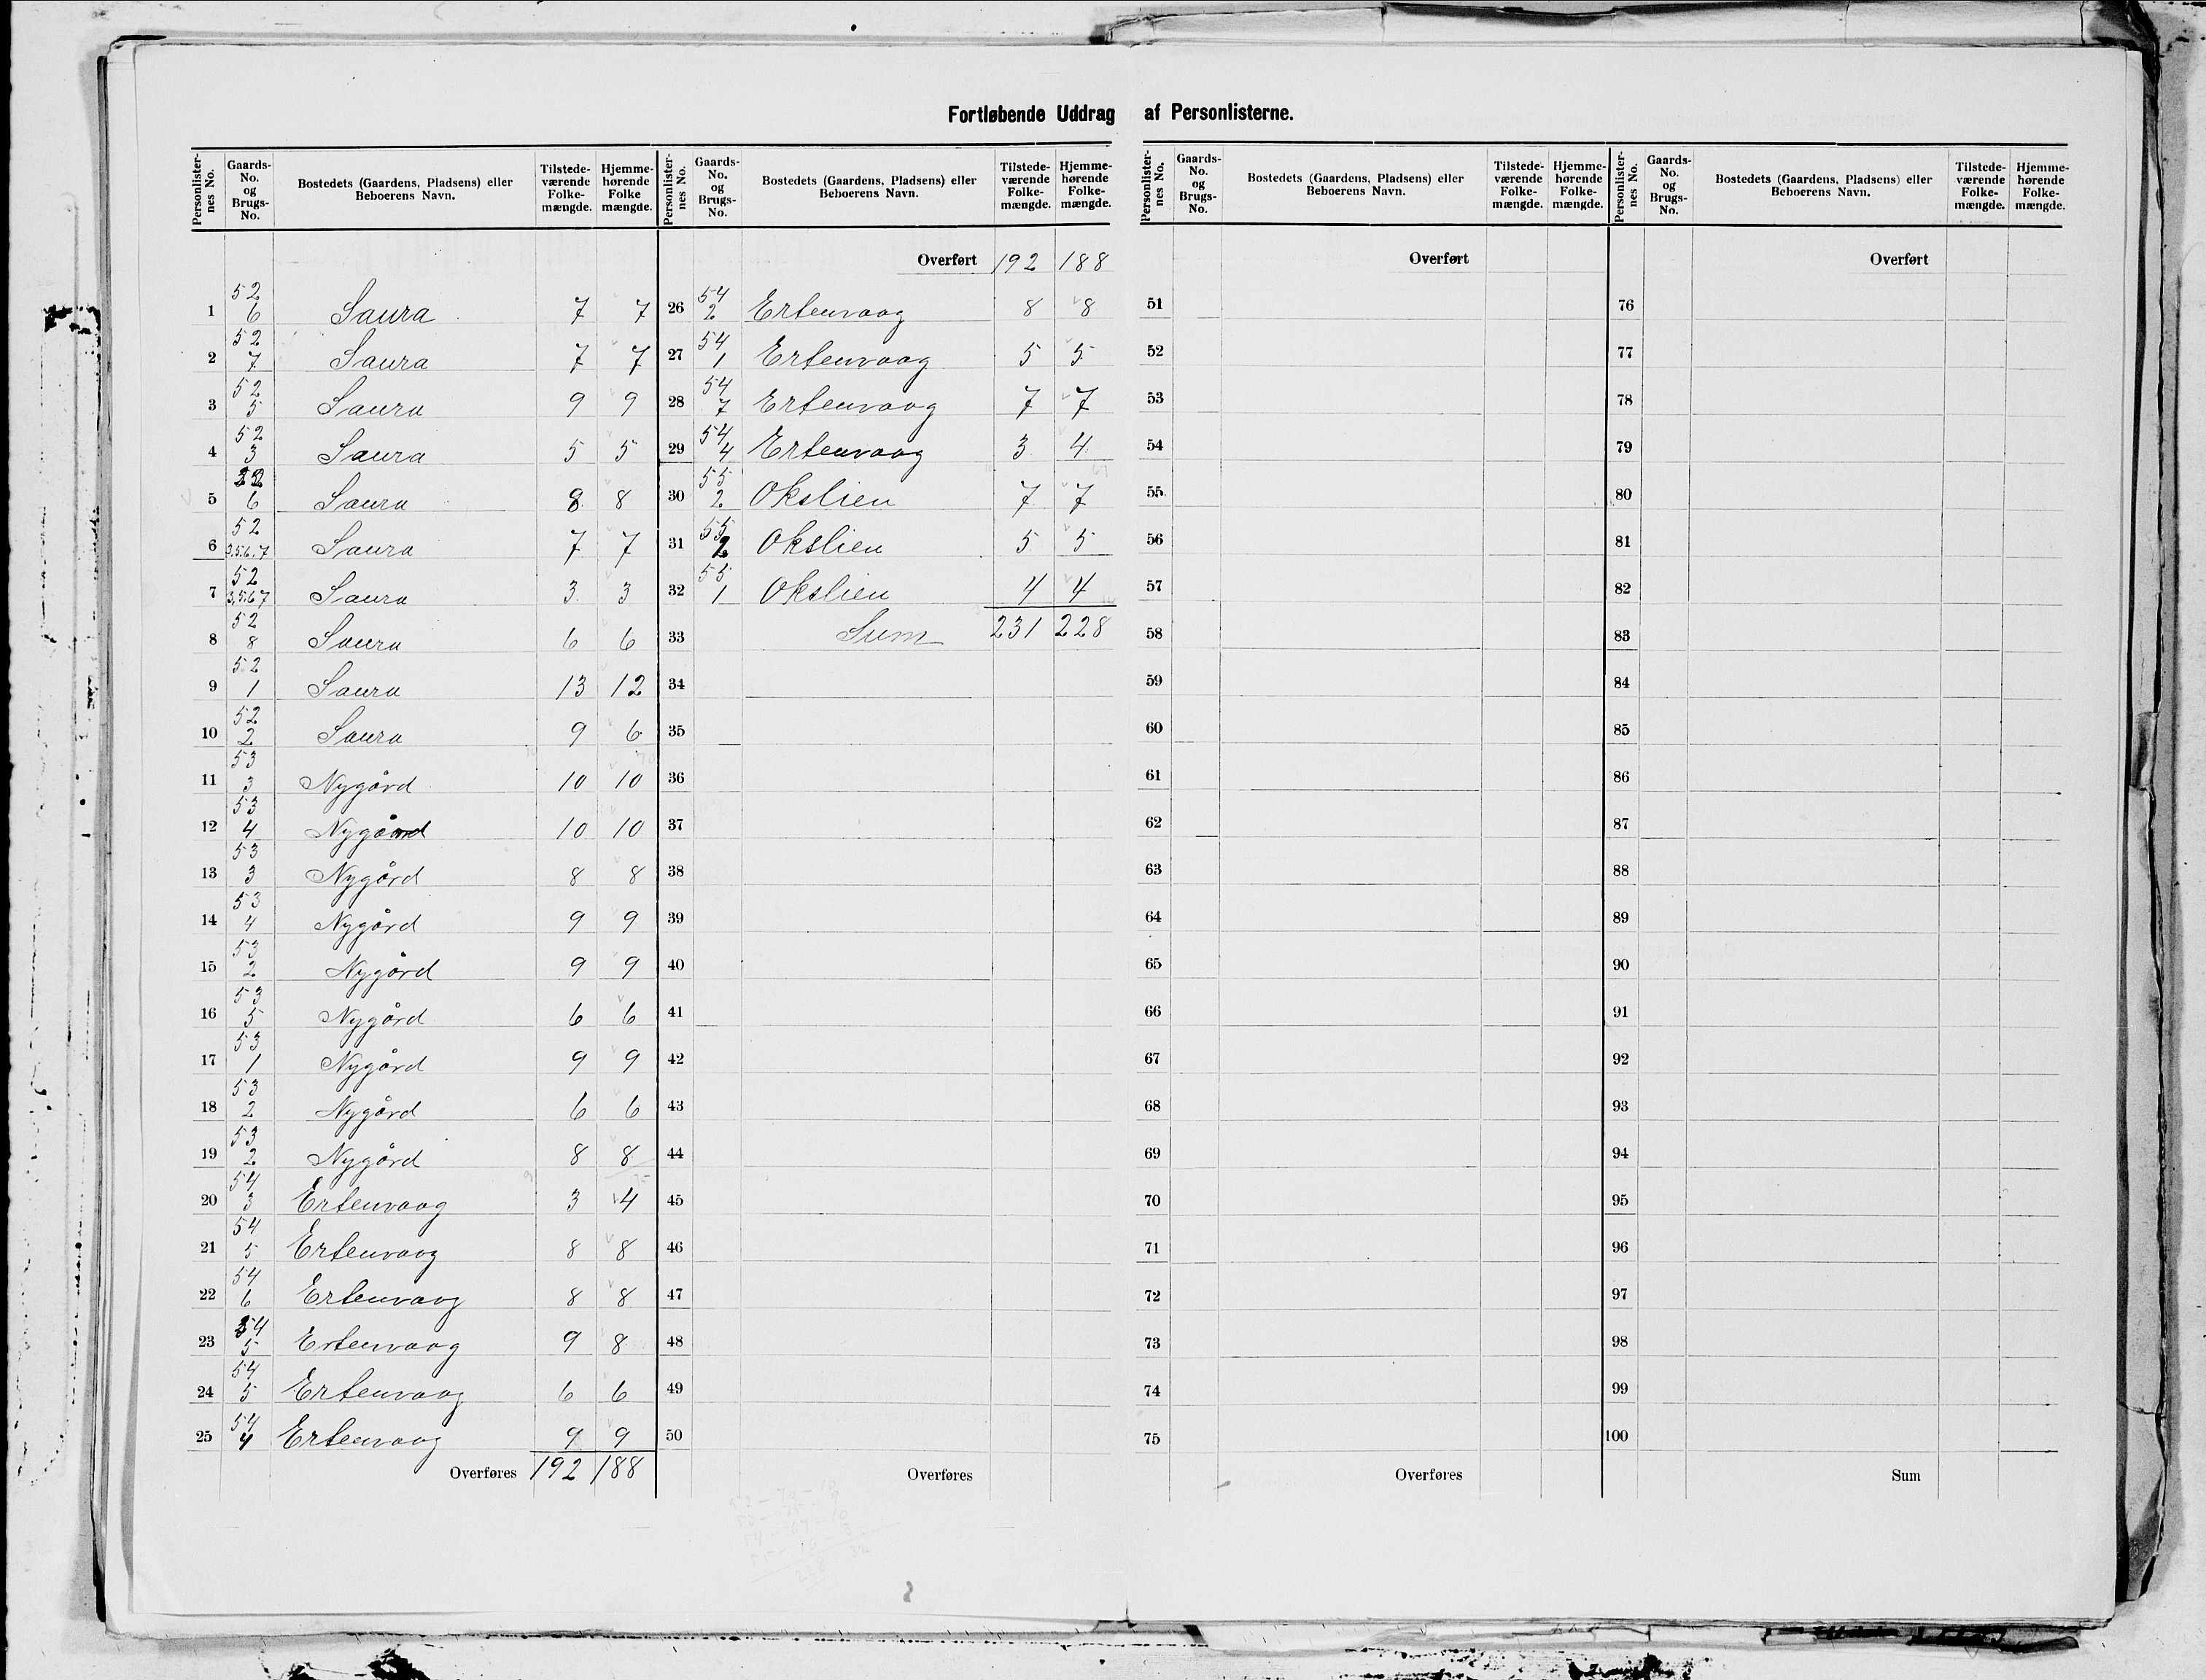 Fortløbende Uddrag af Personlisterne.
Personlister-nes No. | Gaards-No. og Brugs-No. | Bostedets (Gaardens, Pladsens) eller Beboerens Navn. | Tilstede-værende Folke-mængde. | Hjemme-hørende Folke mængde.
1 52/6 Saura 7 7
2 52/7 Saura 7 7
3 52/5 Saura 9 9
4 52/3 Saura 5 5
5 52/6 Saura 8 8
6 52/3.5.6.7 Saura 7 7
7 52/3.5.6 7 Saura 3 3
8 52/8 Saura 6 6
9 52/1 Saura 13 12
10 52/2 Saura 9 6
11 53/3 Nygård 10 10
12 53/4 Nygård 10 10
13 53/3 Nygård 8 8
14 53/4 Nygård 9 9
15 53/2 Nygård 9 9
16 53/5 Nygård 6 6
17 53/1 Nygård 9 9
18 53/2 Nygård 6 6
19 53/2 Nygård 8 8
20 54/3 Ertenvaag 3 4
21 54/5 Ertenvaag 8 8
22 54/6 Ertenvaag 8 8
23 54/5 Ertenvaag 9 8
24 54/5 Ertenvaag 6 6
25 54/4 Ertenvaag 9 9
Overføres 192 188
Personlister-nes No. | Gaards-No. og Brugs-No. | Bostedets (Gaardens, Pladsens) eller Beboerens Navn. | Tilstede-værende Folke-mængde. | Hjemme-hørende Folke-mængde.
Overført 192 188
26 54/2 Ertenvaag 8 8
27 54/1 Ertenvaag 5 5
28 54/7 Ertenvaag 7 7
29 54/4 Ertenvaag 3 4
30 55/2 Okslien 7 7
31 55/2 Okslien 5 5
32 55/1 Okslien 4 4
33 Sum 231 228
34
35
36
37
38
39
40
41
42
43
44
45
46
47
48
49
50
Overføres
Personlister-nes No. | Gaards-No. og Brugs-No. | Bostedets (Gaardens, Pladsens) eller Beboerens Navn. | Tilstede-værende Folke-mængde. | Hjemme-hørende Folke-mængde.
Overført
51
52
53
54
55
56
57
58
59
60
61
62
63
64
65
66
67
68
69
70
71
72
73
74
75
Overføres
Personlister-nes No. | Gaards-No. og Brugs-No. | Bostedets (Gaardens, Pladsens) eller Beboerens Navn. | Tilstede-værende Folke-mængde. | Hjemme-hørende Folke-mængde.
Overført
76
77
78
79
80
81
82
83
84
85
86
87
88
89
90
91
92
93
94
95
96
97
98
99
100
Sum